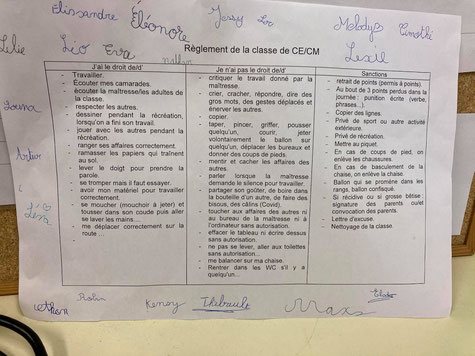 Elissandre Éléonore Jessy Léo Melody Timothé
Lilie Léo Eva Lexie
Règlement de la classe de CE/CM
J'ai le droit de/d'
- Travailler.
- Ecouter mes camarades.
- écouter la maîtresse/les adultes de la
classe.
- respecter les autres.
- dessiner pendant la récréation.
lorsqu'on a fini son travail.
- jouer avec les autres pendant la
récréation.
- ranger ses affaires correctement.
- ramasser les papiers qui traînent
au sol.
- lever le doigt pour prendre la
parole.
- se tromper mais il faut essayer.
- avoir mon matériel pour travailler
correctement.
- se moucher (mouchoir à jeter) et
tousser dans son coude puis aller
se laver les mains...
- me déplacer correctement sur la
route ...
Je n'ai pas le droit de/d'
- critiquer le travail donné par la
maîtresse.
- crier, cracher, répondre, dire des
gros mots, des gestes déplacés et
énerver les autres.
- copier.
- taper, pincer, griffer, pousser
quelqu'un, courir, jeter
volontairement le ballon sur
quelqu'un, déplacer les bureaux et
donner des coups de pieds.
- mentir et cacher les affaires des
autres.
- parler lorsque la maîtresse
demande le silence pour travailler.
- partager son goûter, de boire dans
la bouteille d'un autre, de faire des
bisous, des câlins (Covid).
- toucher aux affaires des autres ni
au bureau de la maîtresse ni à
l'ordinateur sans autorisation.
- effacer le tableau ni écrire dessus
sans autorisation.
- ne pas se lever, aller aux toilettes
sans autorisation...
- me balancer sur ma chaise.
- Rentrer dans les WC s'il y a
quelqu'un...
Sanctions
- retrait de points (permis à points).
- Au bout de 3 points perdus dans la
journée : punition écrite (verbe,
phrases...).
- Copier des lignes.
- Privé de sport ou autre activité
extérieure.
- Privé de récréation.
- Mettre au piquet.
- En cas de coups de pied, on
enlève les chaussures.
- En cas de basculement de la
chaise, on enlève la chaise.
- Ballon qui se promène dans les
rangs, ballon confisqué.
- Si récidive ou si grosse bêtise :
signature des parents ou/et
convocation des parents.
- Lettre d'excuse.
- Nettoyage de la classe.
Louna
Artur
Léna
ethan Robin Kenay Thibault Maxs